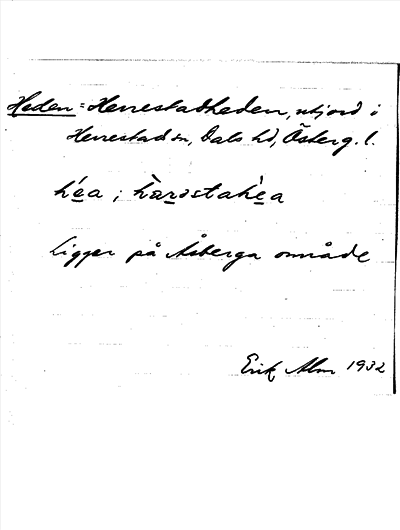 Heden = Herrestadheden, utjord i
Herrestad sn, Dals hd, Österg. l.
hé̲a ; hàrəstahè̲a
Ligger på Åsberga område
Erik Alm 1932